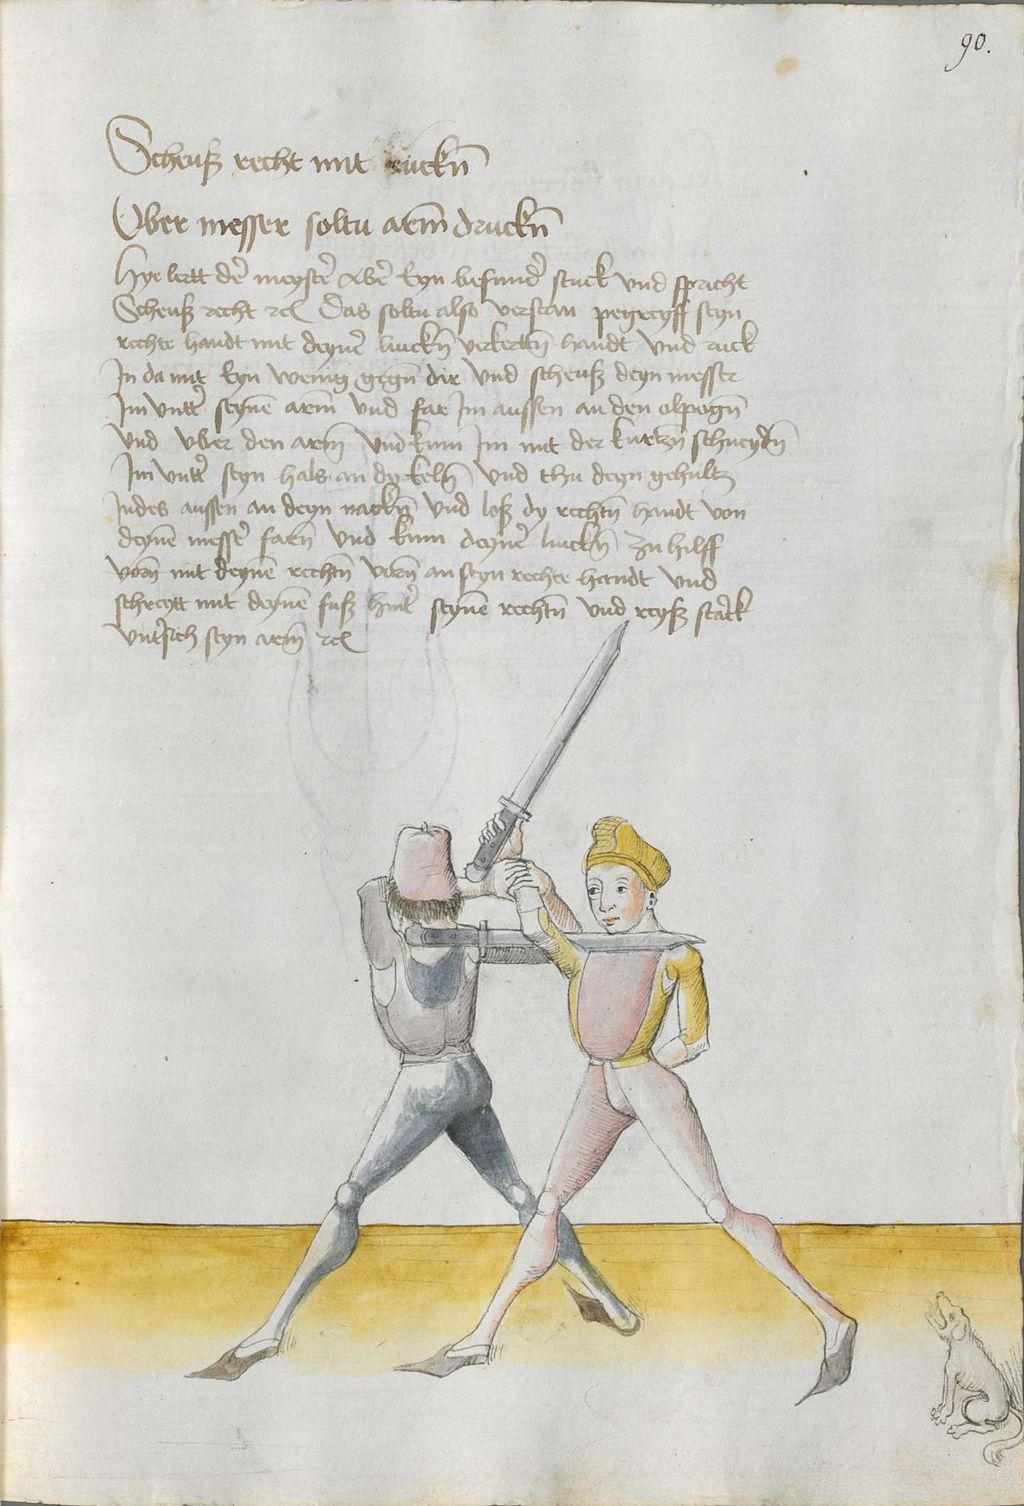 90.
Scheuß recht mit ruckn̄
Vber messer soltu arm̄ druckn̄
Hye lertt der̄ meyster̄ aber̄ eyn besunder̄ stuck vnd spricht
Scheuß recht ꝛcꝭ Das soltu also verstan peyreyff seyn
rechte handt mit deyner̄ linckn̄ verkertn̄ handt vnd ruck
In da mit eyn wenig gegn̄ dir vnd scheuß deyn messer
Im vntter̄ seynē arm̄ vnd far Im aussen an den elpogn̄
vnd vber den arm̄ vnd kum Im mit der kurtzn̄ schneydn̄
Im vntter̄ seyn hals an dy keln̄ vnd thu deyn gehultz
Indes aussen an deyn nackn̄ vnd loß dy rechtn̄ handt von
deynē messer̄ farn̄ vnd kum deyner̄ linckn̄ zu hilff
vorn̄ mit deynē rechtn̄ vorn̄ an seyn rechte handt vnd
schreytt mit deynē fuß hinter̄ seynē rechtn̄ vnd reyß starck
vntersich seyn arm̄ ꝛcꝭ